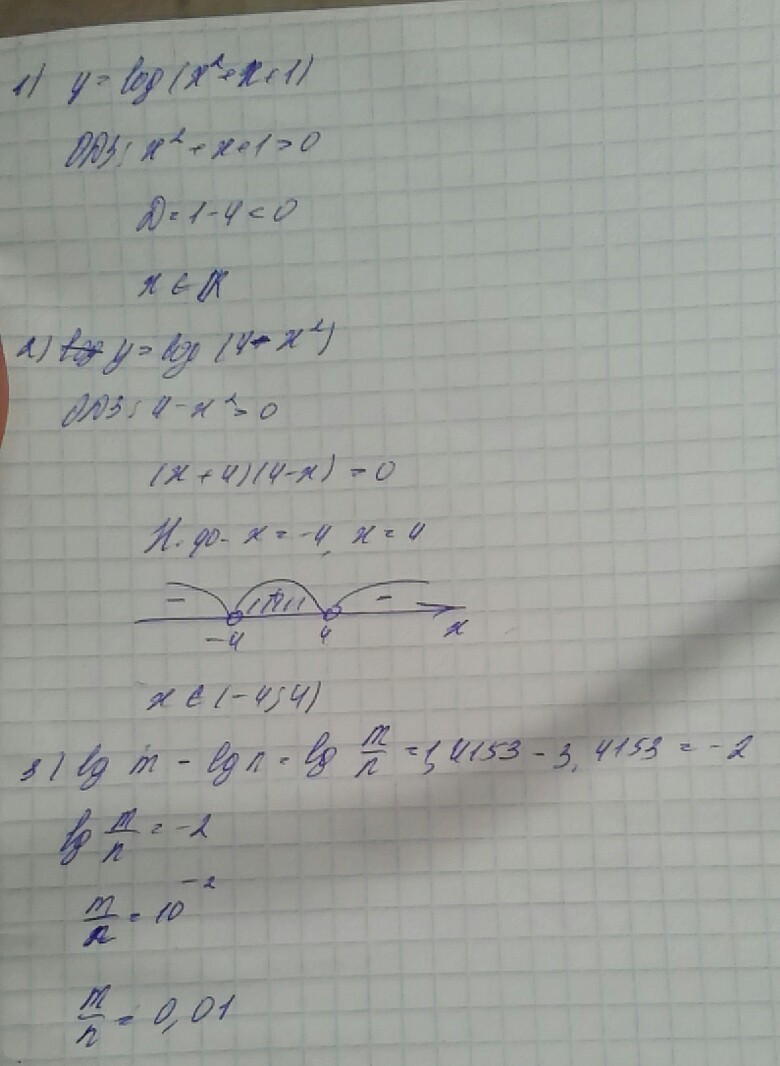 1) y = log (x² + x + 1)
ОДЗ: x² + x + 1 > 0
D = 1 - 4 < 0
x ∈ R
2) y = log (4 - x²)
ОДЗ: 4 - x² > 0
(x + 4)(4 - x) = 0
Н. ф. x = -4, x = 4
- + -
-4 4 x
x ∈ (-4; 4)
3) lg m - lg n = lg m/n = 1,4153 - 3,4153 = -2
lg m/n = -2
m/n = 10⁻²
m/n = 0,01